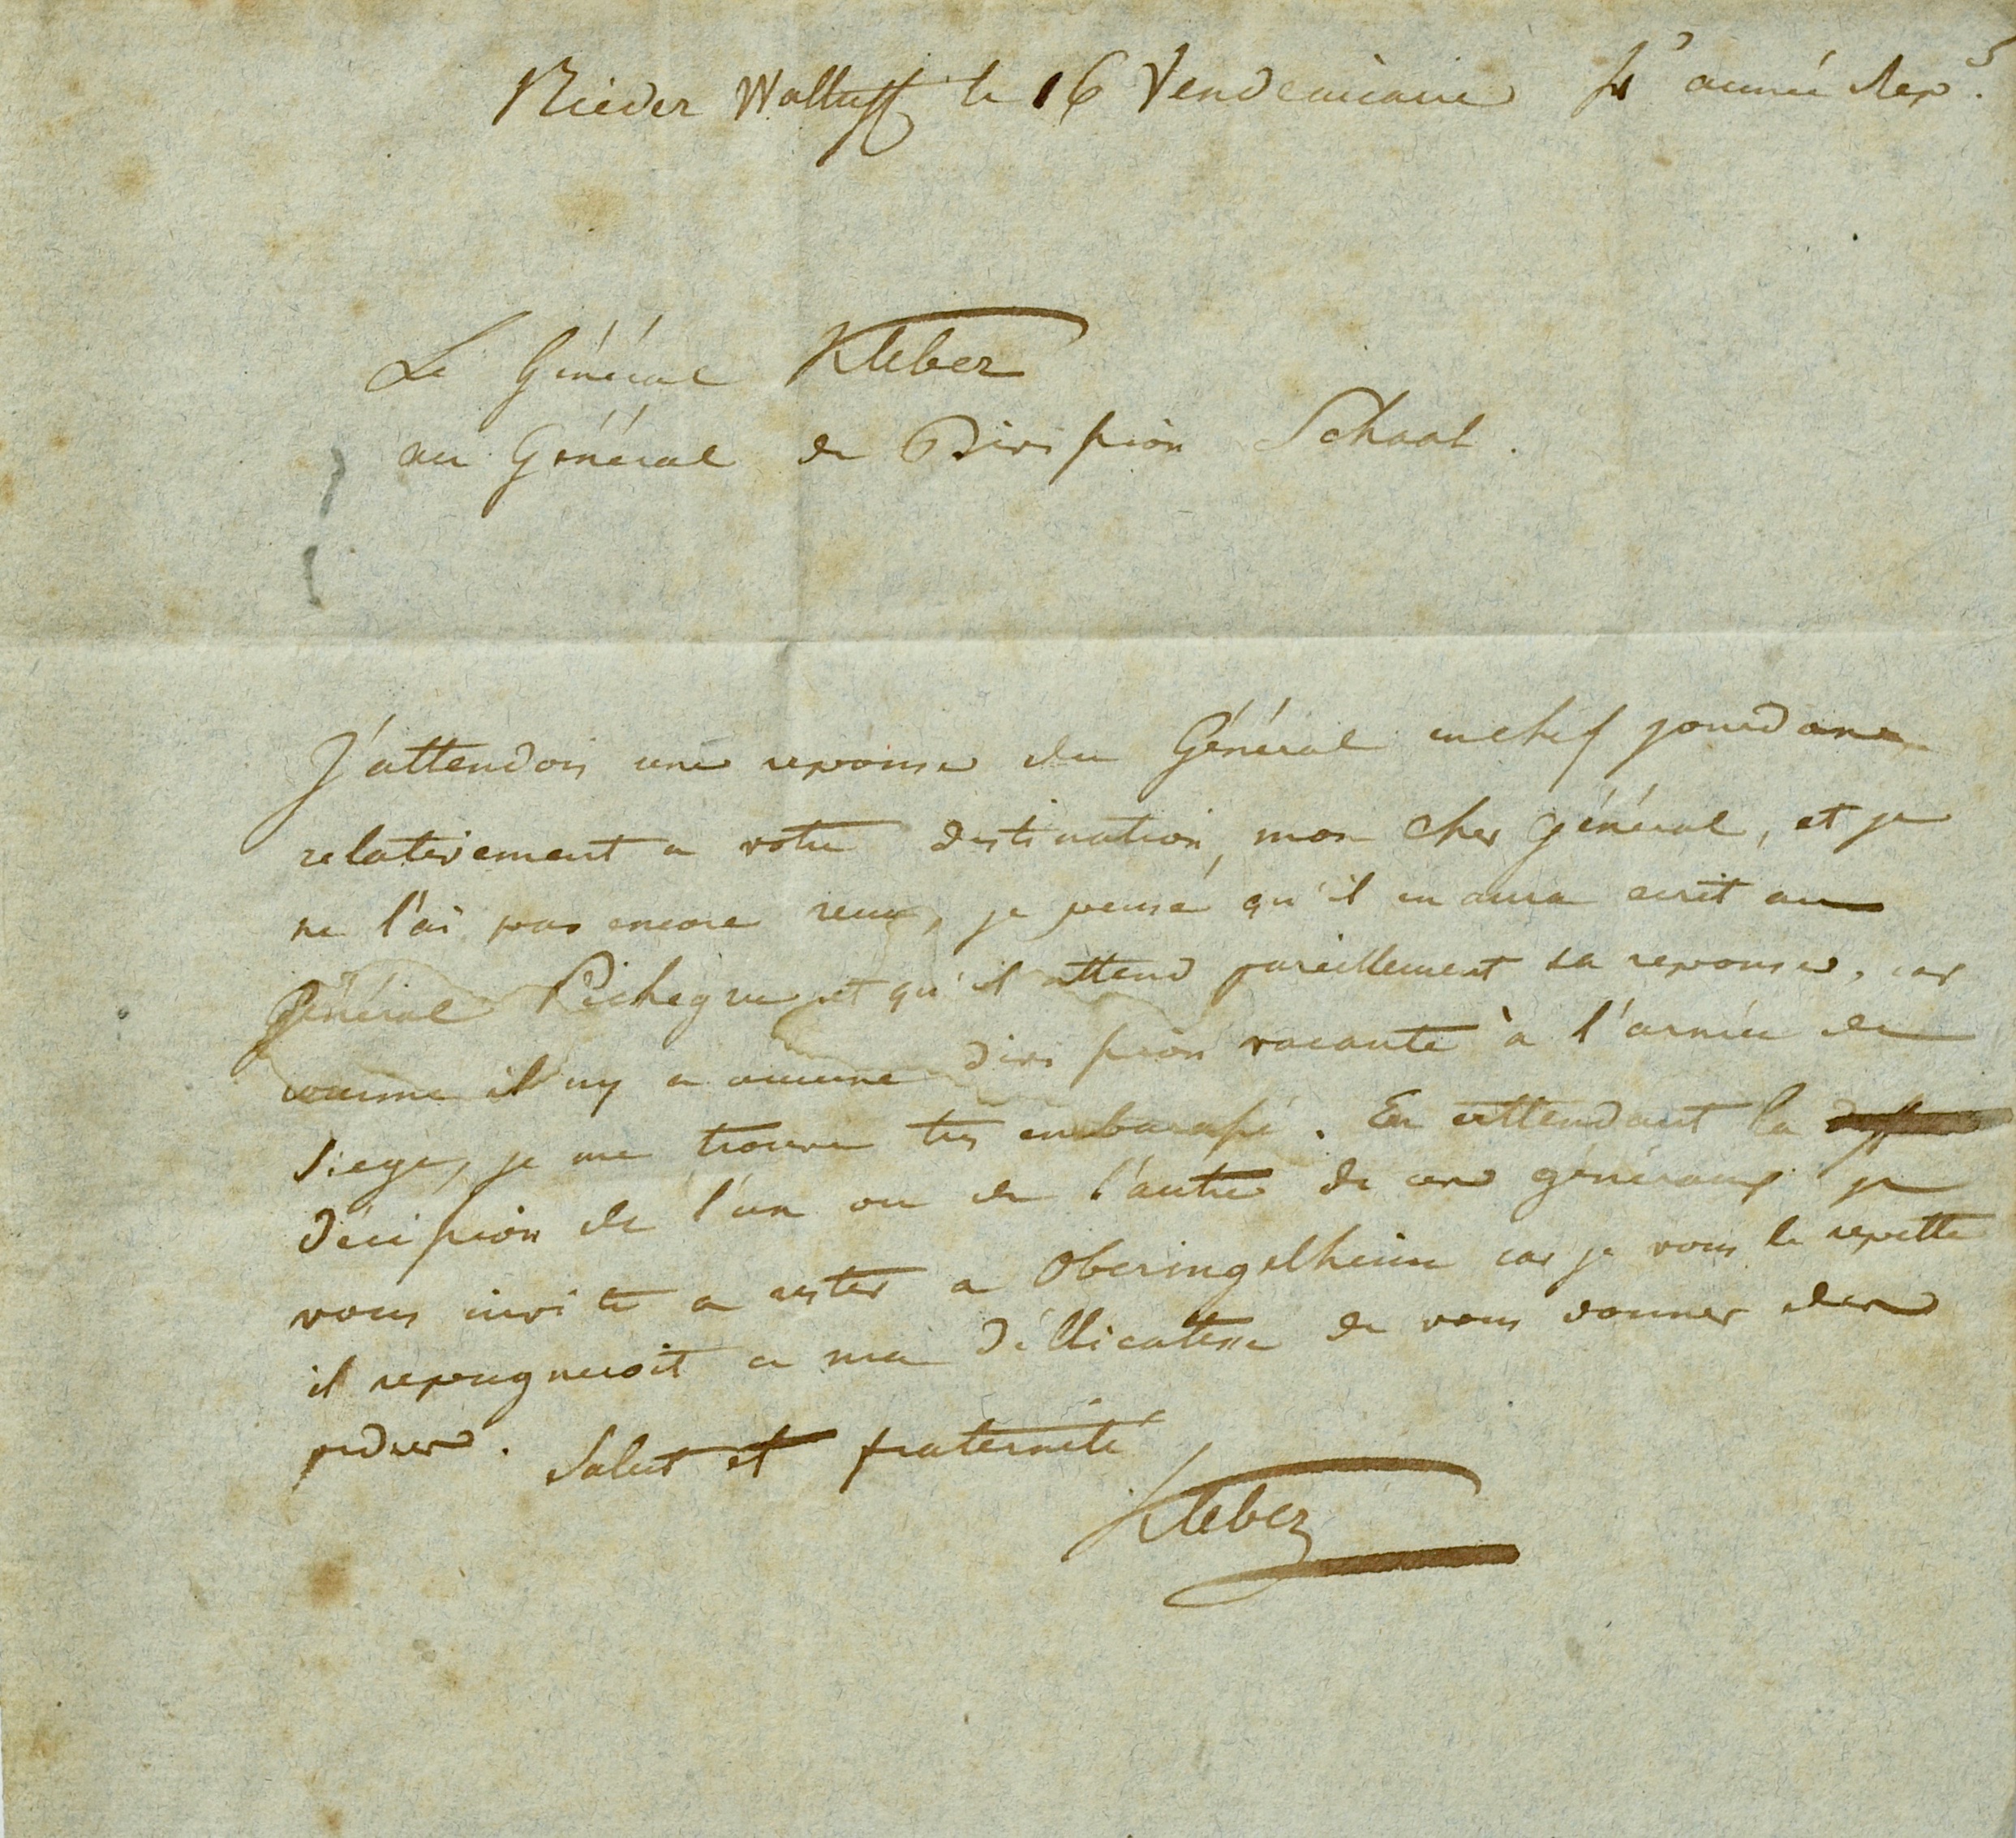 Nieder Walluff le 16 Vendemiaire 4e année Rep.
Le Général Kleber
au Général de Division Schaal.
J'attendois une reponse du Général en chef jourdan
relativement a votre destination, mon cher général, et je
ne l'ai pas encore reçue, je pense qu'il en aura ecrit au
Général Pichegru et qu'il attend pareillement sa reponse, car
comme il n'y a aucune division vacante à l'armée de
siege, je me trouve très embarassé. En attendant la
décission de l'un ou de l'autre de ces généraux je
vous invite a rester a Oberingelheim car je vous le repette
il repugneroit a ma déllicatesse de vous donner des
ordres. Salut et fraternité
Kleber